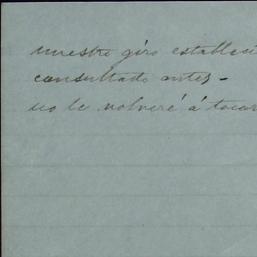 nuestro giro estableci
consultado antes -
no le volveré á tocar